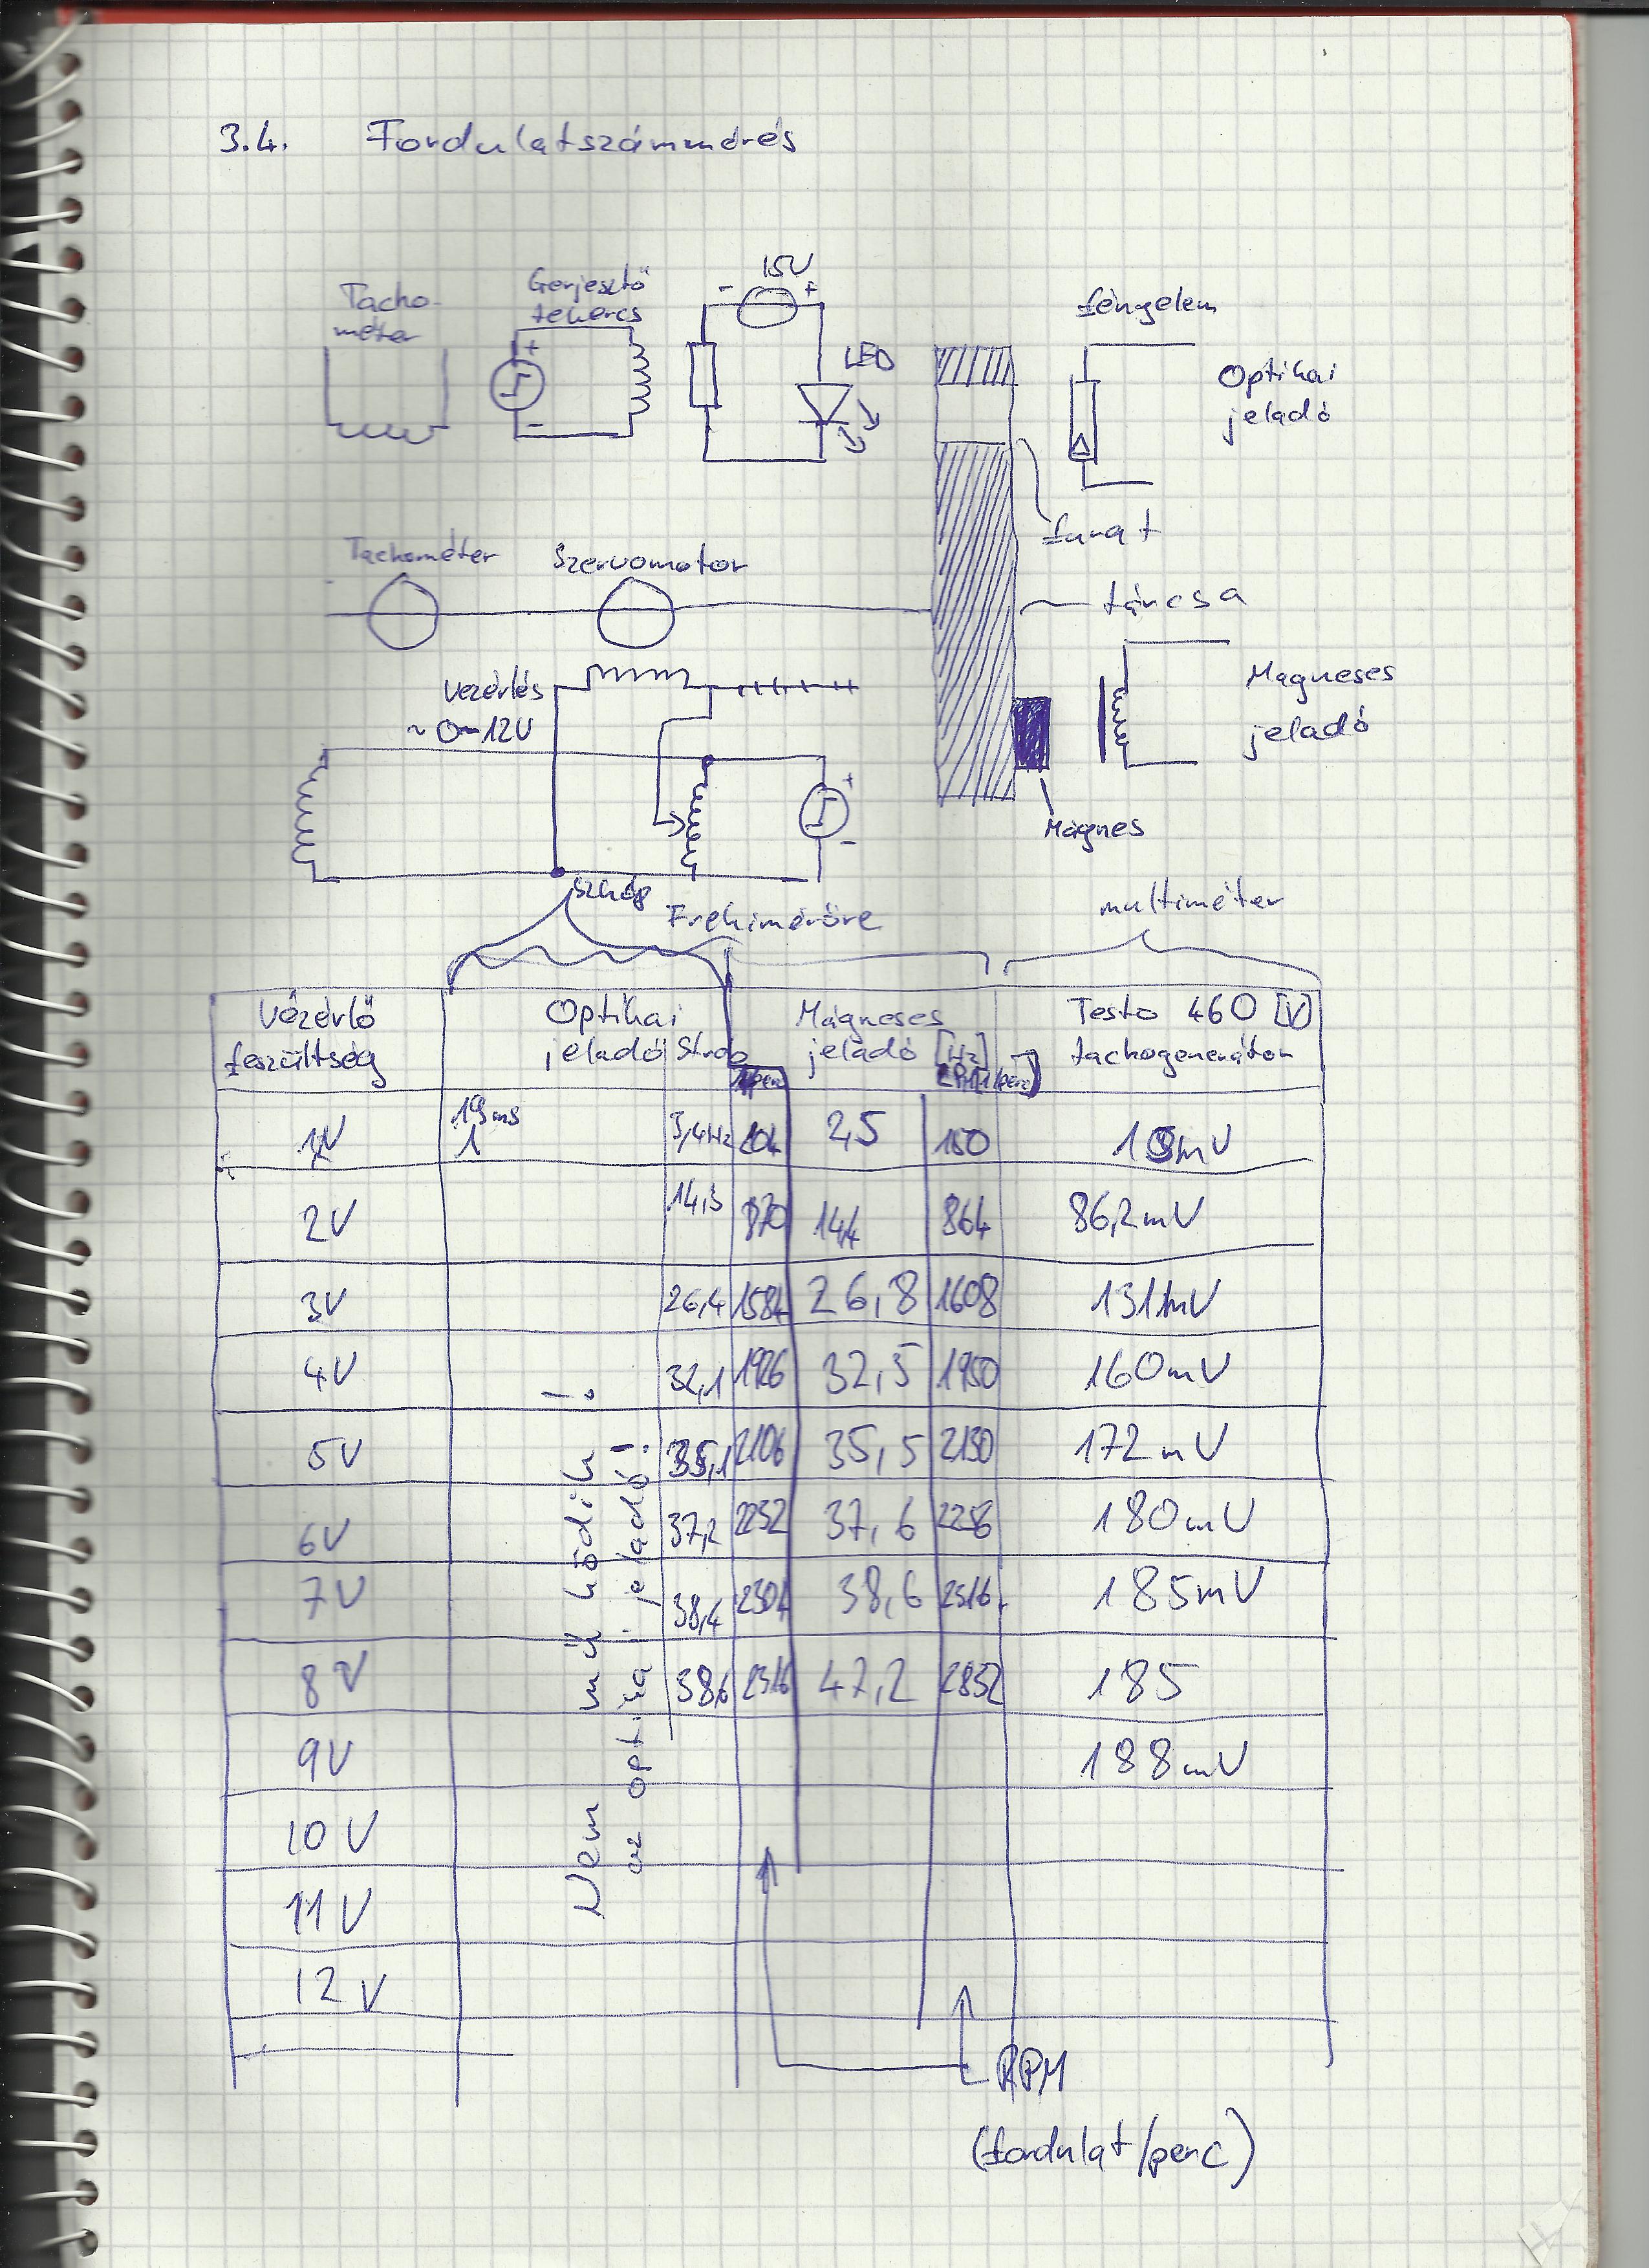 3.4. Fordulatszámmérés
15V
Gerjesztő
tekercs
Tacho-
méter
+
-
- +
LED
fényelem
Optikai
jeladó
furat
Tachométer
Szervomotor
tárcsa
vezérlés
~0-12V
Magneses
jeladó
+
-
Mágnes
Frekimérőre
multiméter
Vezérlő
feszültség
Optikai
jeladó
Strob
Mágneses
jeladó [Hz]
Testo 460 [V]
tachogenerátor
1V 19ms 3,4Hz 204 2,5 150 18mV
2V 14,5 870 14,4 864 86,2mV
3V 26,4 1584 26,8 1608 131mV
4V 32,1 1926 32,5 1950 160mV
5V 35,1 2106 35,5 2130 172mV
6V 37,2 2232 37,6 2256 180mV
7V 38,4 2304 38,6 2316 185mV
8V 38,6 2316 47,2 2832 185
9V 188mV
10V
11V
12V
Nem működik!
az optikai jeladó!
RPM
(fordulat/perc)